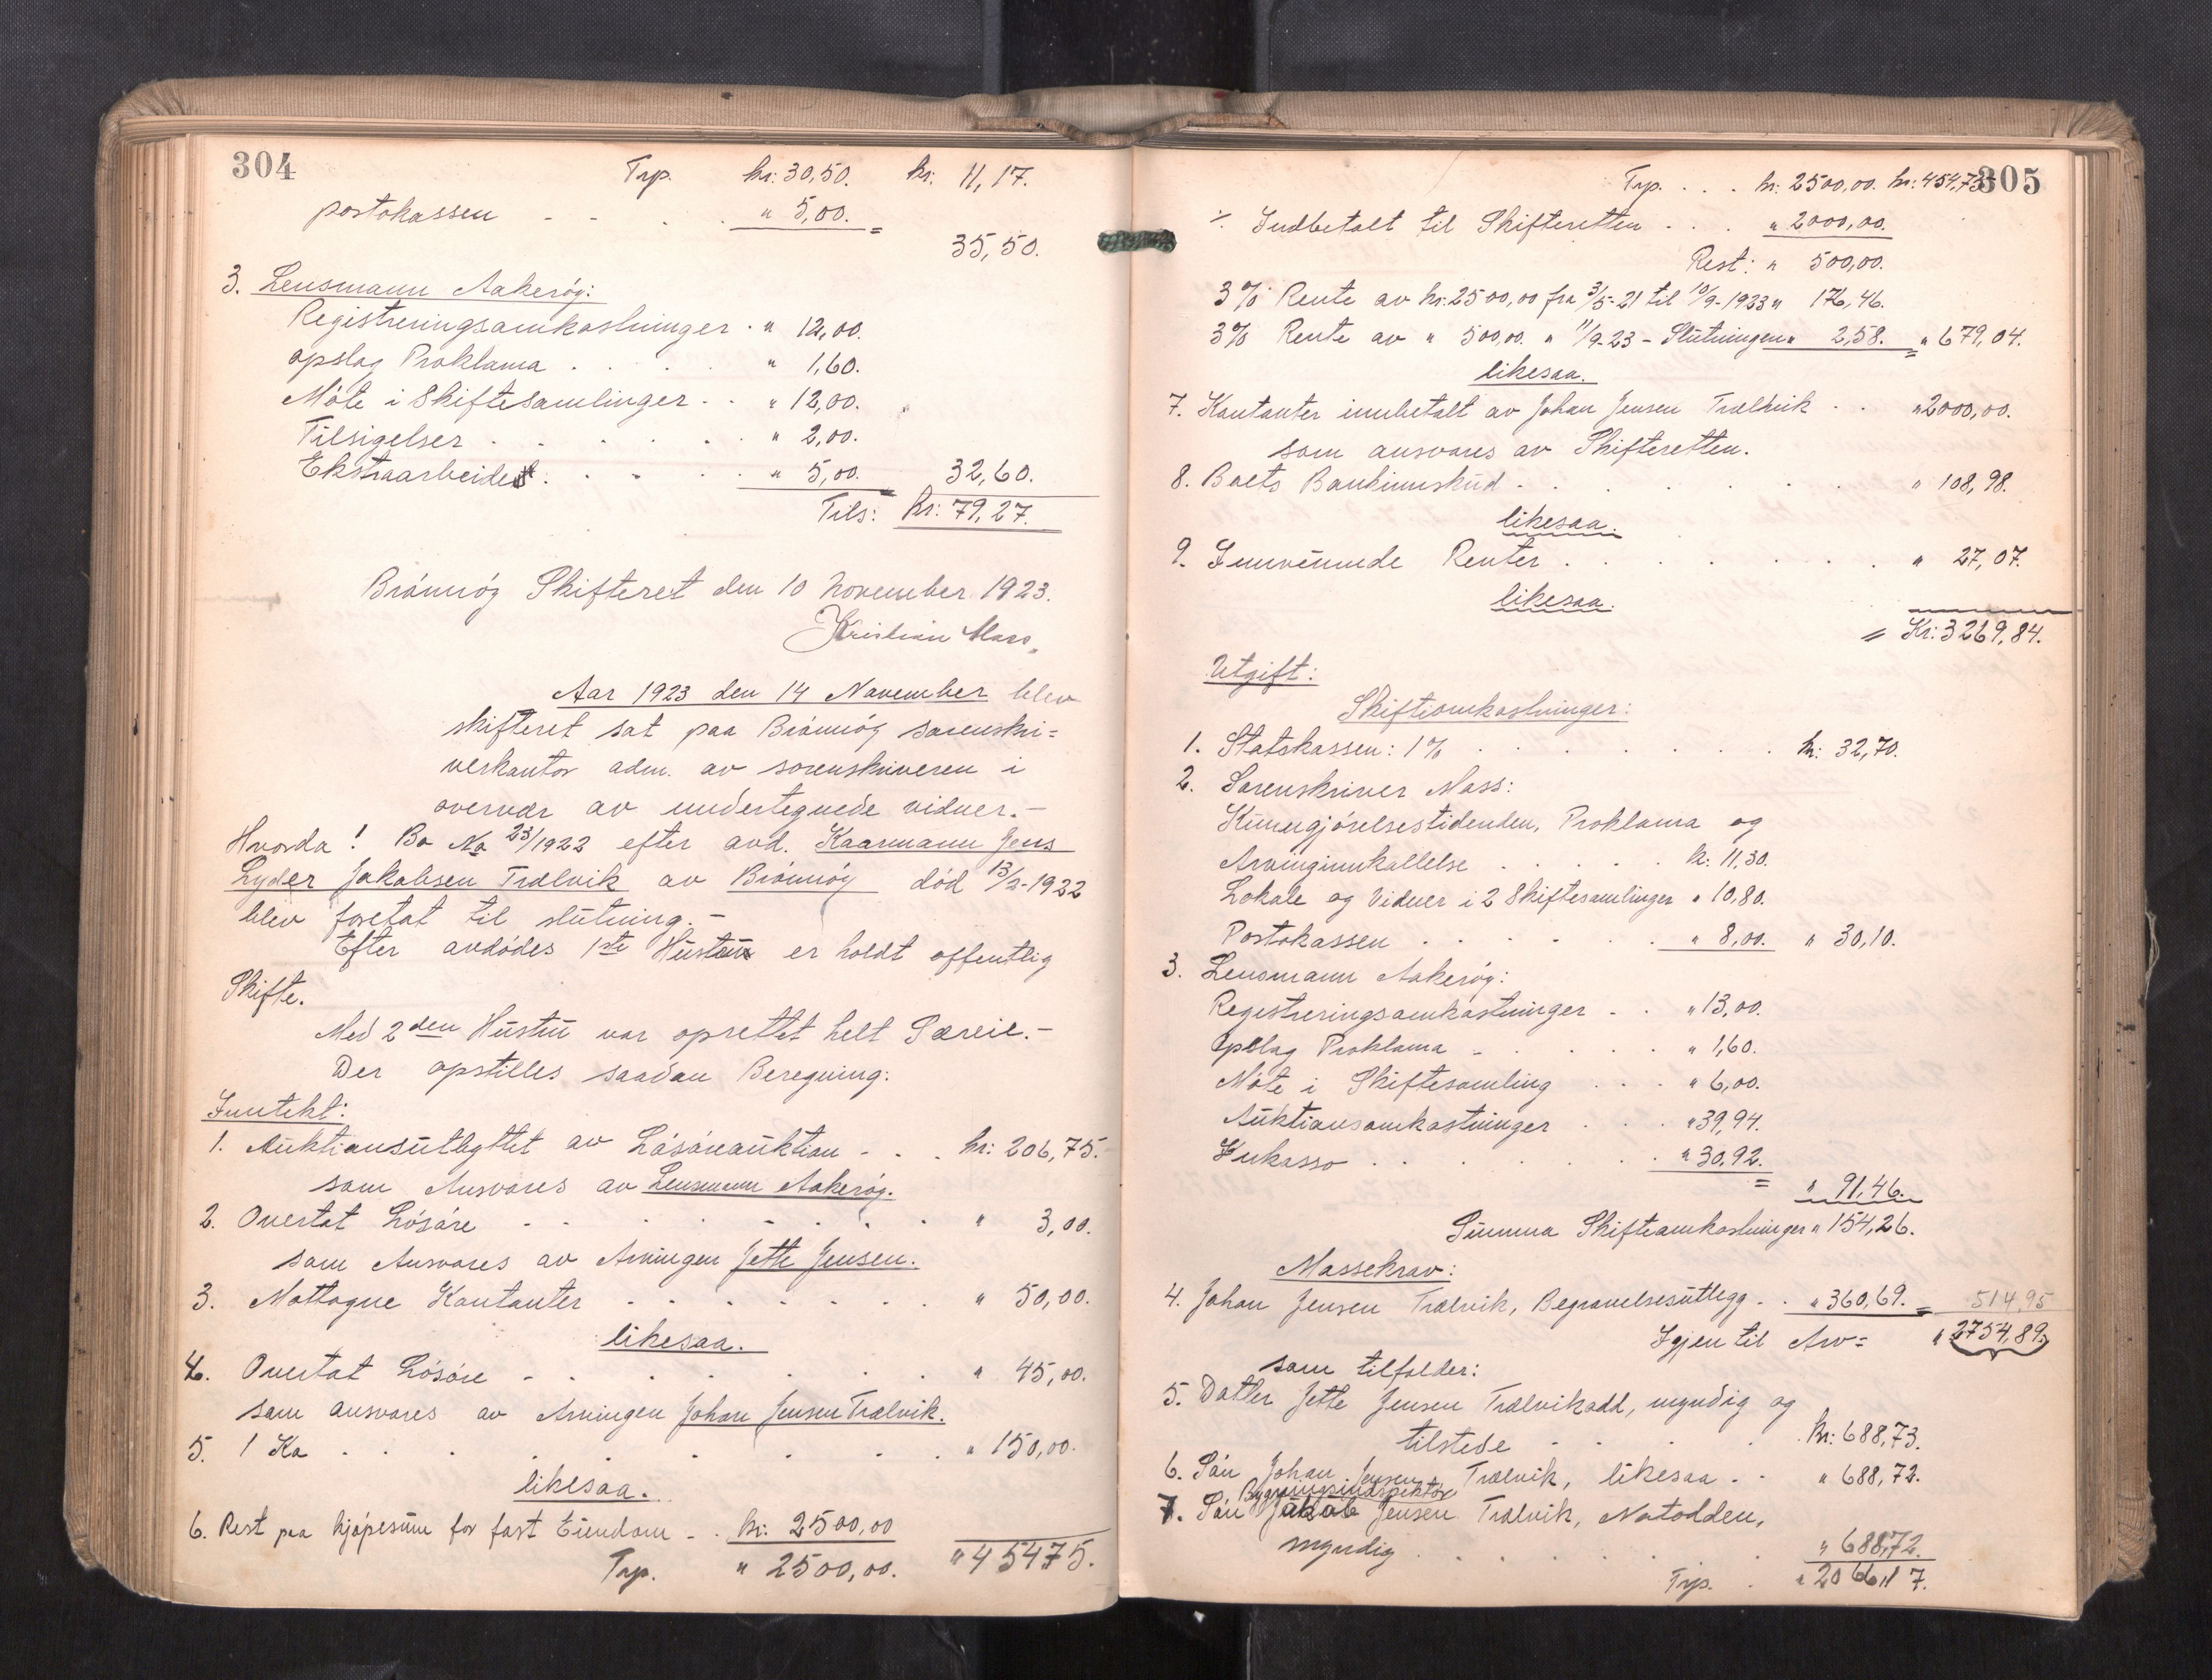 304
Trp. kr: 30,50. kr: 11,17.
portokassen - - . . " 5,00.
35,50.
3. Lensmann Aakerøy:
Registreringsomkostninger . " 12,00.
opslag Proklama . . . " 1,60.
Møte i Skiftesamlinger - . " 12,00.
Tilsigelser . . . . . " 2,00.
Ekstraarbeidet . . . . " 5,00. 32,60.
Tils: kr: 79,27.
Brønnøy Skifteret den 10 November 1923.
Kristian Mass.
Aar 1923 den 14 November blev
skifteret sat paa Brønnøy sorenskri=
verkontor adm. av sorenskriveren i
overvær av undertegnede vidner.-
Hvorda! Bo No 23/1922 efter avd. Kaarmann Jens
Lyder Jakobsen Trælvik av Brønnøy død 13/2-1922
blev foretat til slutning.-
Efter avdødes 1ste Hustru er holdt offentlig
Skifte.
Med 2den Hustru var oprettet helt Særeie.-
Der opstilles saadan Beregning:
Inntekt:
1. Auktionsutbyttet av Løsøreauktion - . . kr: 206,75.
som Ansvares av Lensmann Aakerøy.
2. Overtat Løsøre - - . . - . . " 3,00.
som Ansvares av Arvingen Jette Jensen.
3. Mottagne Kontanter . - . - . . . " 50,00.
likesaa.
4. Overtat Løsøre - . . . . . . " 45,00.
som ansvares av Arvingen Johan Jensen Trælvik.
5. 1 Ko . . . . . . . . " 150,00.
likesaa.
6. Rest paa kjøpesum for fast Eiendom - . kr: 2500,00
Trp. " 2500,00. " 454 75.
305
Trp. . . . kr: 2500,00. kr: 454,75
÷ Indbetalt til Skifteretten . . . " 2000,00.
Rest: " 500,00.
3% Rente av kr: 2500,00 fra 3/5-21 til 10/9-1923 " 176,46.
3% Rente av " 500,00. " 11/9-23 - Slutningen " 2,58. " 679,04.
likesaa.
7. Kontanter innbetalt av Johan Jensen Trælvik . . " 2000,00.
som ansvares av Skifteretten.
8. Boets Bankinnskud - . . . . . . " 108,98.
likesaa.
9. Innvunnede Renter . . . . . . . " 27,07.
likesaa.
= Kr: 3269,84.
Utgift:
Skifteomkostninger:
1. Statskassen: 1% . . . . . . . kr: 32,70.
2. Sorenskriver Mass:
Kunngjørelsestidenden, Proklama og
Arvinginnkallelse . . . . . k: 11,30.
Lokale og Vidner i 2 Skiftesamlinger " 10,80.
Portokassen . . . . . . " 8,00. " 30,10.
3. Lensmann Aakerøy:
Registreringsomkostninger . . " 13,00.
Opslag Proklama - . . . . " 1,60.
Møte i Skiftesamling . . . " 6,00.
Auktionsomkostninger . . . " 39,94.
Inkasso . . . . . . . " 30,92.
" 91,46.
Summa Skifteomkostninger " 154,26.
Massekrav:
4. Johan Jensen Trælvik, Begravelsesutlegg . . " 360,69. = 514,95
Igjen til Arv = " 2754,89.
som tilfalder:
5. Datter Jette Jensen Trælvikodd, myndig og
tilstede . . . . . kr: 688,73.
6. Søn Johan Jensen Trælvik, likesaa . . " 688,72.
Bygningsindspektør
7. Søn Jakob Jensen Trælvik, Notodden,
myndig . . . . . . . " 688,72.
Trp. . " 2066,17.